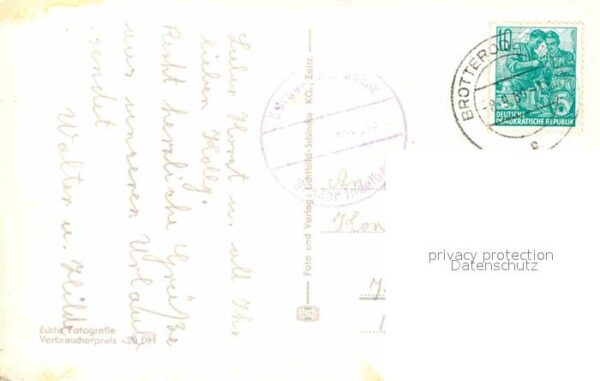 Lieber Horst u. all Ihr
lieben Kollg.
Recht herzliche Grüße
aus unserem Urlaub
sendet
Walter u. Hilde
Echte Fotografie
Verbraucherpreis -,20 DM
Foto und Verlag: Lichtbild-Schincke KG., Zeitz
BROTTERODE
10
5
DEUTSCHE
DEMOKRATISCHE REPUBLIK
An
privacy protection
Datenschutz